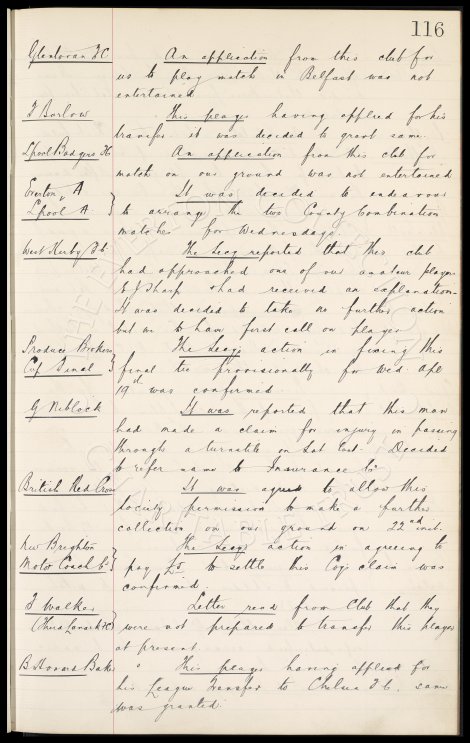 116
Glentoran F C An application from this club for
us to play match in Belfast was not
entertained
T Borlow This player having applied for his
transfer it was decided to grant same.
Lpool Badgers Fc An application from this club for
match on our ground was not entertained
Everton A It was decided to endeavour
v
Lpool A to arrange the two County Combination
matches for Wednesdays.
West Kirby F.C. The Secy reported that this club
had approached one of our amateur players
E J Sharp & had received an explanation
It was decided to take no further action
but we to have first call on player
Produce Brokers The Secy's action in fixing this
Cup Final final tie provisionally for Wed Apl
19th was confirmed.
G Niblock It was reported that this man
had made a claim for injury in passing
through a turnstile on Sat last. Decided
to refer same to Insurance Co
British Red Cross It was agreed to allow this
society permission to make a further
collection on our ground on 22nd inst.
New Brighton The Secys action in agreeing to
Motor Coach Co pay £5 to settle this Coy's claim was
confirmed.
T Walker Letter read from Club that they
(Third Lanark FC) were not prepared to transfer this player
at present.
B. Howard Baker This player having applied for
his League Transfer to Chelsea F.C. same
was granted.